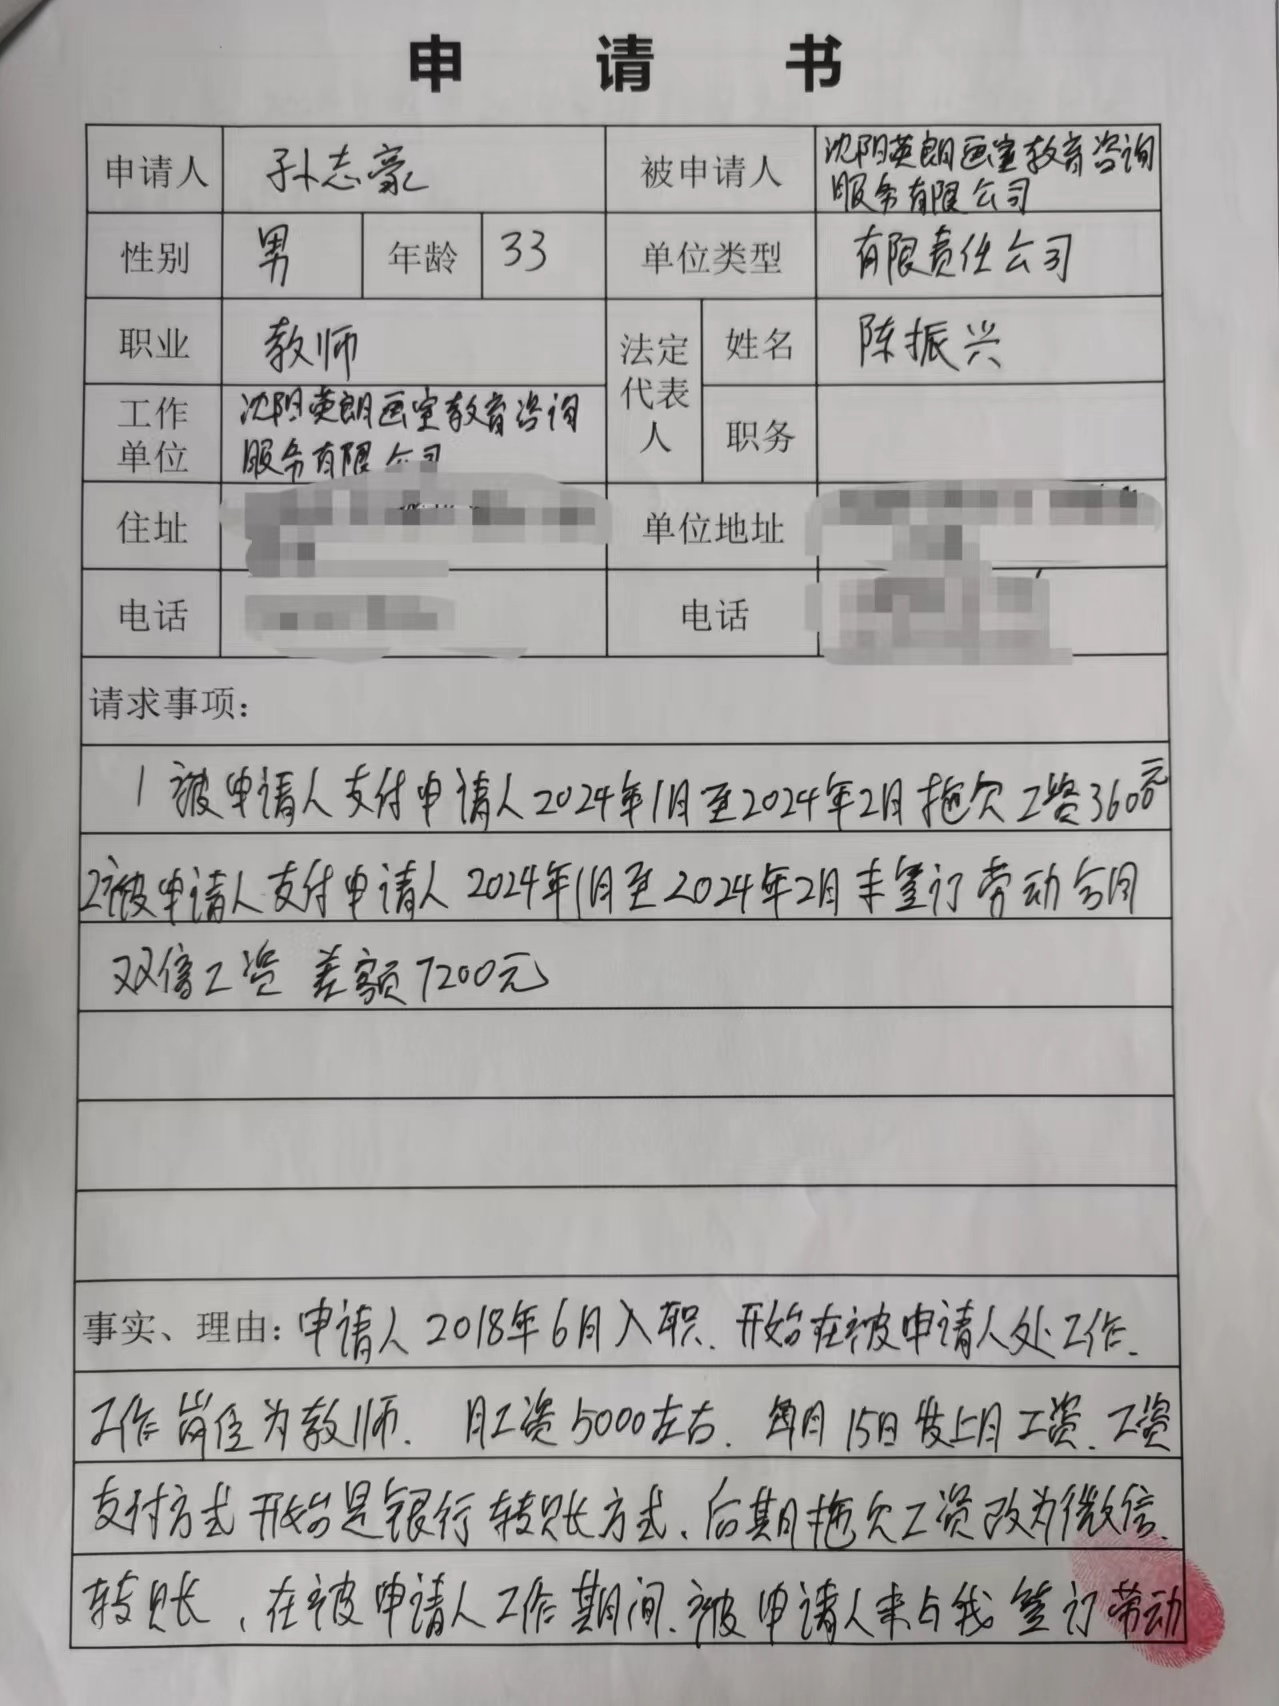 申请书
申请人 孙志豪 被申请人 沈阳英朗画室教育咨询
服务有限公司
性别 男 年龄 33 单位类型 有限责任公司
职业 教师 法定代表人 姓名 陈振兴
工作单位 沈阳英朗画室教育咨询
服务有限公司 职务
住址 单位地址
电话 电话
请求事项：
1 被申请人支付申请人2024年1月至2024年2月拖欠工资3600元
2被申请人支付申请人2024年1月至2024年2月未签订劳动合同
双倍工资 差额7200元
事实、理由：申请人2018年6月入职、开始在被申请人处工作.
工作岗位为教师. 月工资5000左右. 每月15日发上月工资、工资
支付方式开始是银行转账方式、后期拖欠工资改为微信.
转账、在被申请人工作期间.被申请人未与我签订劳动